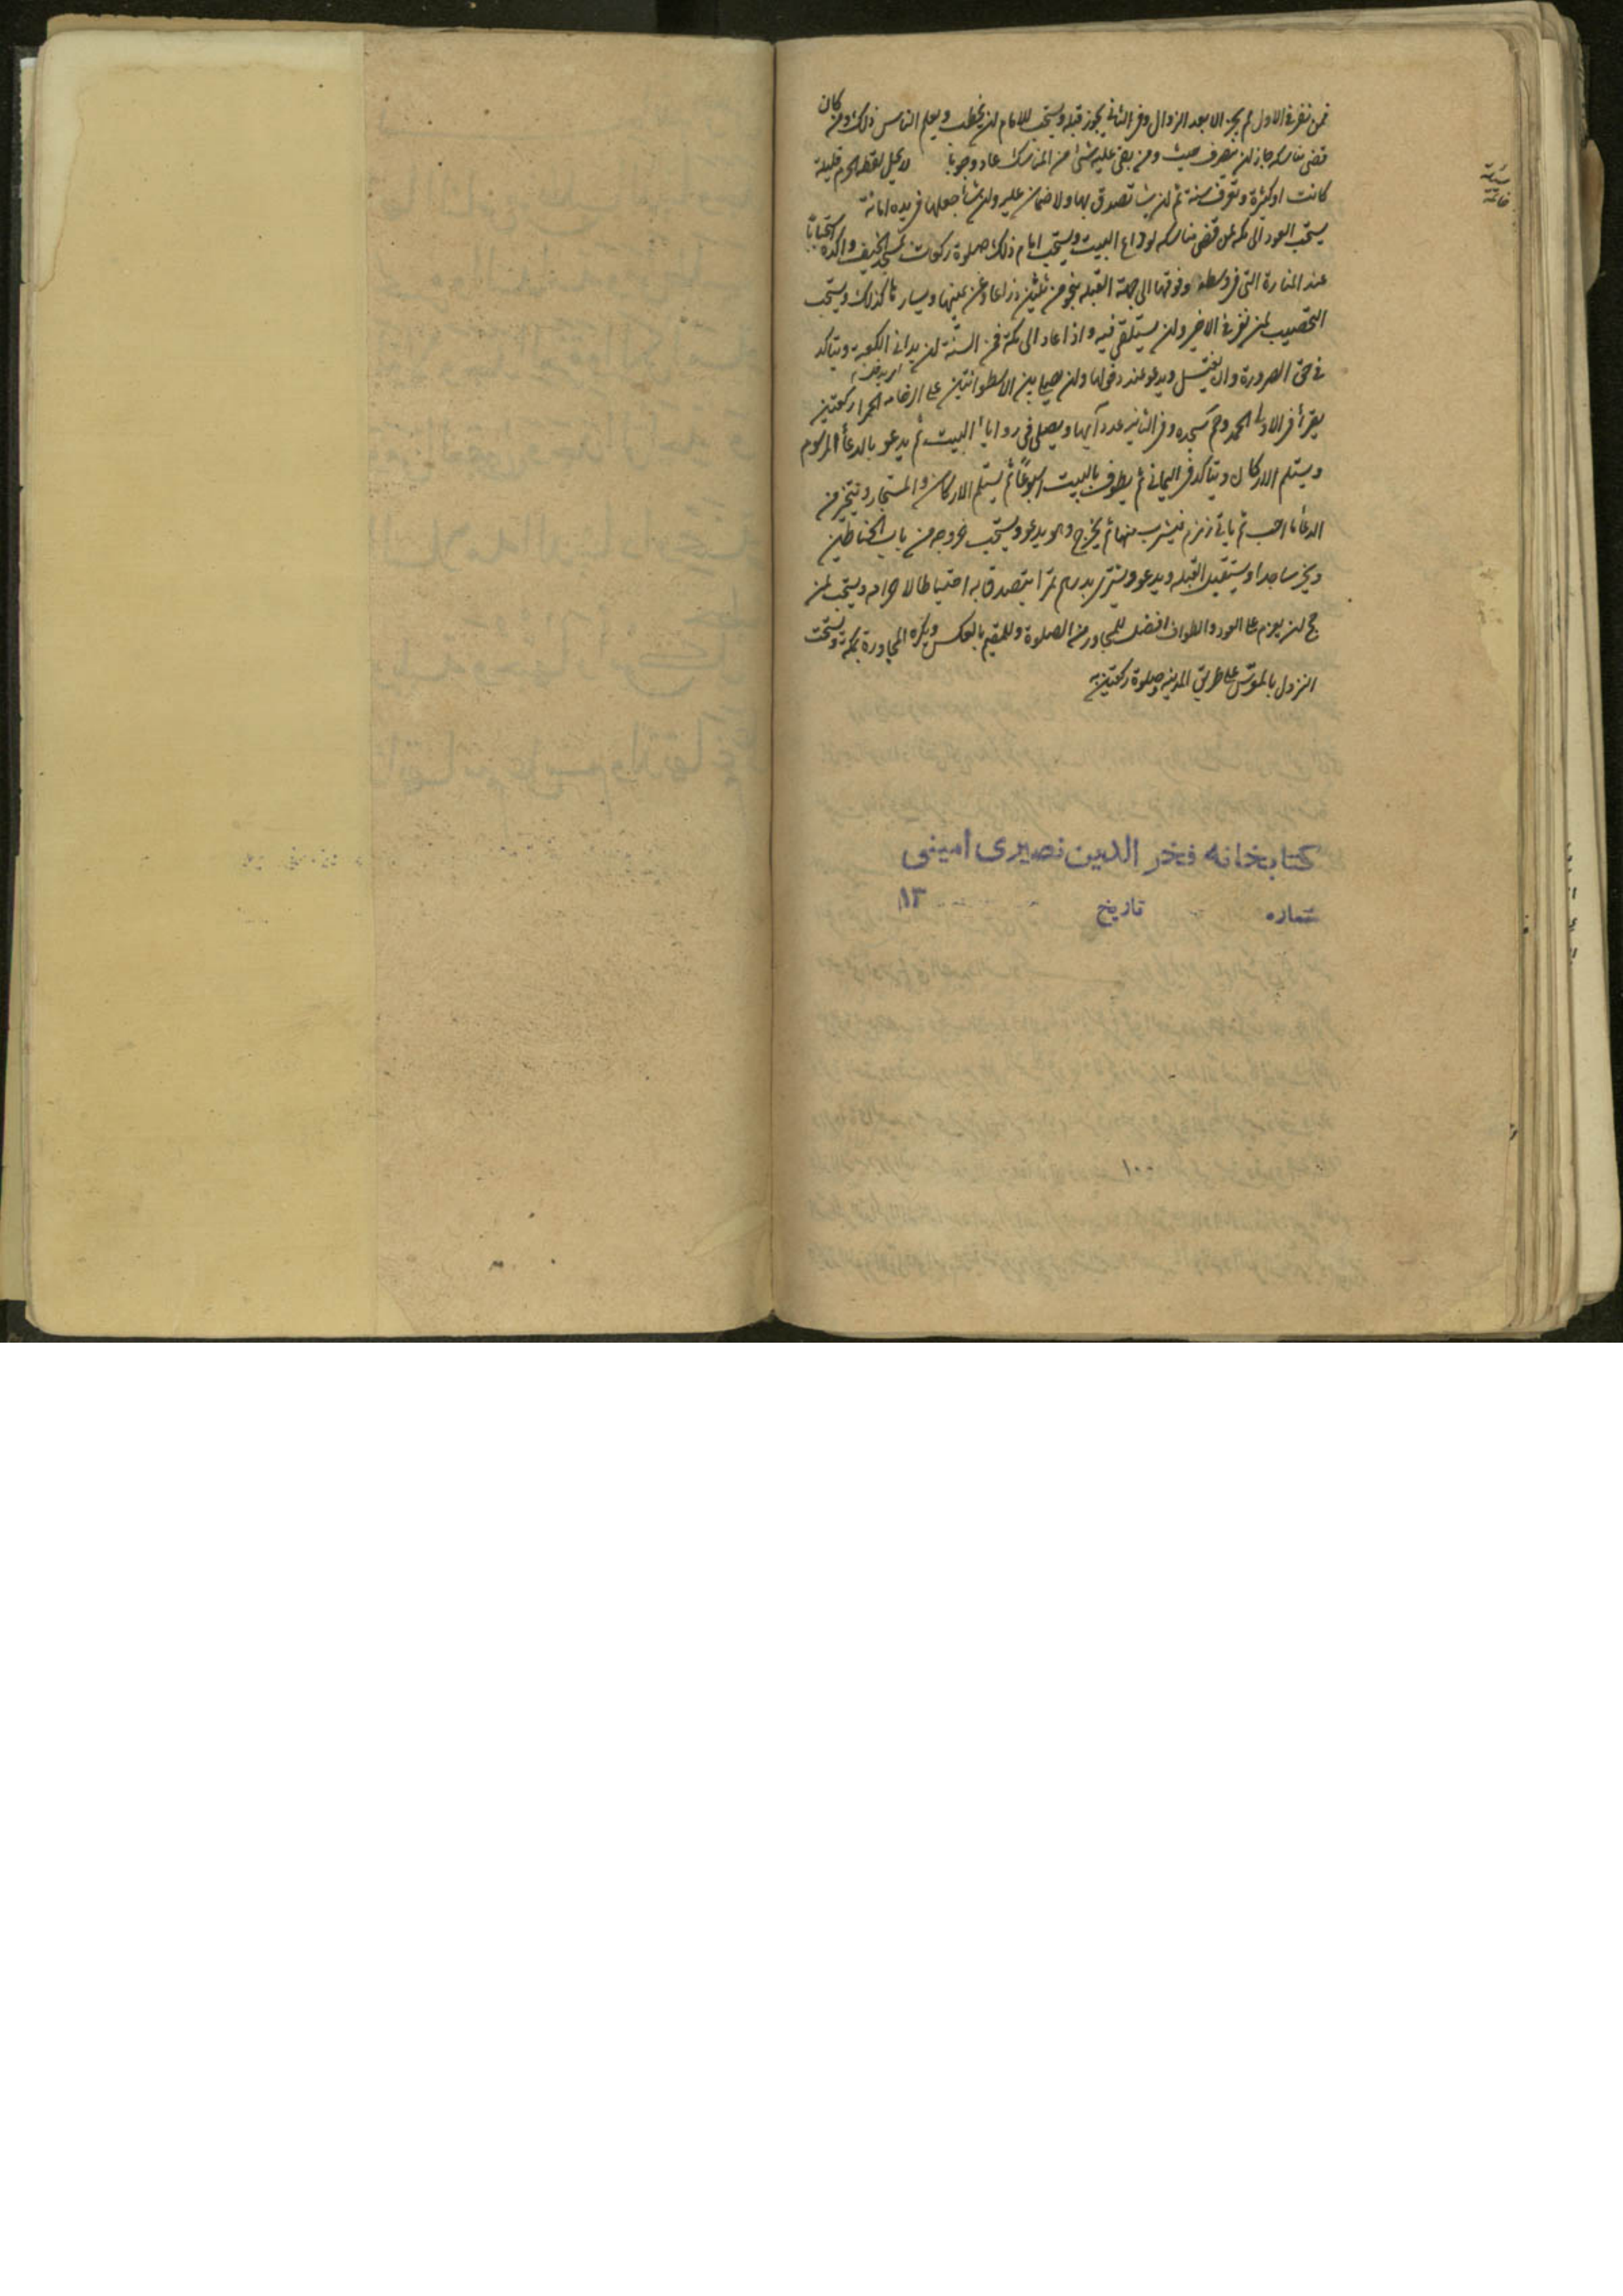 فمن نفر في الاول لم يجز الا بعد الزوال وفي الثاني يجوز قبله ويستحب للامام ان يخطب ويعلم الناس ذلك ومن كان
قضى مناسكه جاز ان ينصرف حيث ومن بقى عليه شئ من المناسك عاد وجوبا لا يحل لقطة الحرم قليلة
كانت او كثيرة وتعرف سنة ثم ان شا تصدق بها ولا ضمان عليه وان شأ جعلها في يده امانة
يستحب العود الى مكة لمن قضى مناسكه لوداع البيت ويستحب امام ذلك صلوة ركعات بمسجد الخيف واكده استحبابًا
عند المنارة التي في وسطه وفوقها الى جهة القبلة بنحو من ثلثين ذراعا وعن يمينها ويسارها كذلك ويستحب
التحصيب لمن نفر في الاخير وان يستلقى فيه واذا عاد الى مكة فمن السنة ان يدخل الكعبة ويتاكد
في حق الصرورة وان يغتسل ويدعو عند دخولها وان يصلي بين الاسطوانتين على الرخامة الحمرا ركعتين
يقرأ في الاولى الحمد وحم سجده وفي الثانية عدد آيها ويصلى في زوايا البيت ثم يدعو بالدعأ المرسوم
ويستلم الاركان ويتاكد في اليماني ثم يطوف بالبيت اسبوعًا ثم يستلم الاركان والمستجار ويتخير من
الدعأ ما احب ثم ياتي زمزم فيشرب منها ثم يخرج وهو يدعو ويستحب خروجه من باب الحناطين
ويخر ساجدا ويستقبل القبلة ويدعو ويشترى بدرهم تمرا يتصدق به احتياطا لاحرامه ويستحب لمن
حج ان يعزم على العود والطواف افضل للمجاور من الصلوة وللمقيم بالعكس ويكره المجاورة بمكة ويستحب
النزول بالمعرس على طريق المدينة وصلوة ركعتين به
كتابخانه فخر الدين نصيرى امينى
شماره تاريخ ۱۳
۱۰۰